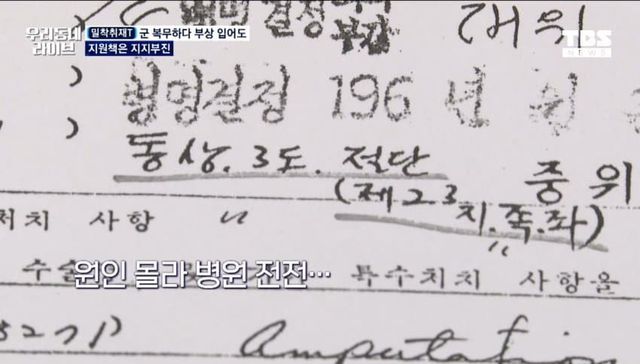 우리동네 라이브
밀착취재T 군 복무하다 부상 입어도
지원책은 지지부진
TBS
NEWS
병명결정
대위
병명결정 196 년
동상. 3도. 절단 중위
(제2 3
지. 족. 좌)
처치 사항
원인 몰라 병원 전전…
수술
특수처치 사항을
Amputation